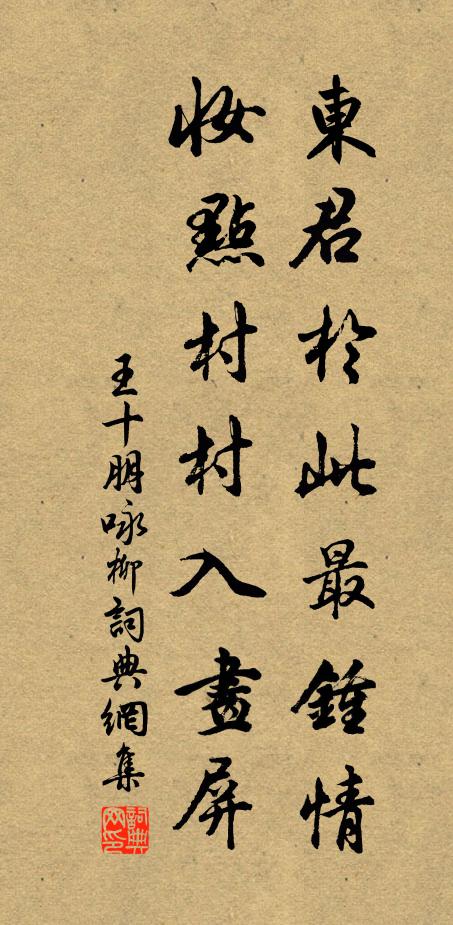 東君於此最鍾情
妝點村村入畫屏
王十朋咏柳詞典網集
詞典网印